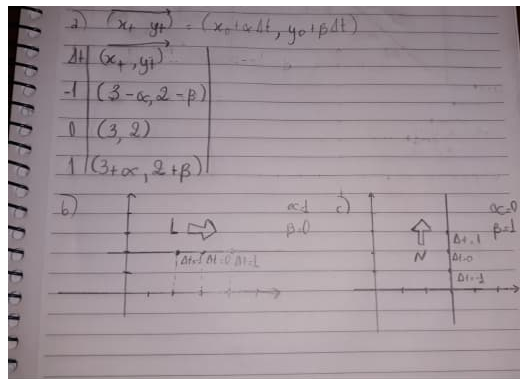 a) (xₜ, yₜ) = (x₀+αΔt, y₀+βΔt)
Δt | (xₜ, yₜ)
-1 | (3-α, 2-β)
0 | (3, 2)
1 | (3+α, 2+β)
b)
L
α=1
β=0
Δt=-1 Δt=0 Δt=1
c)
α=0
β=1
N
Δt=1
Δt=0
Δt=-1